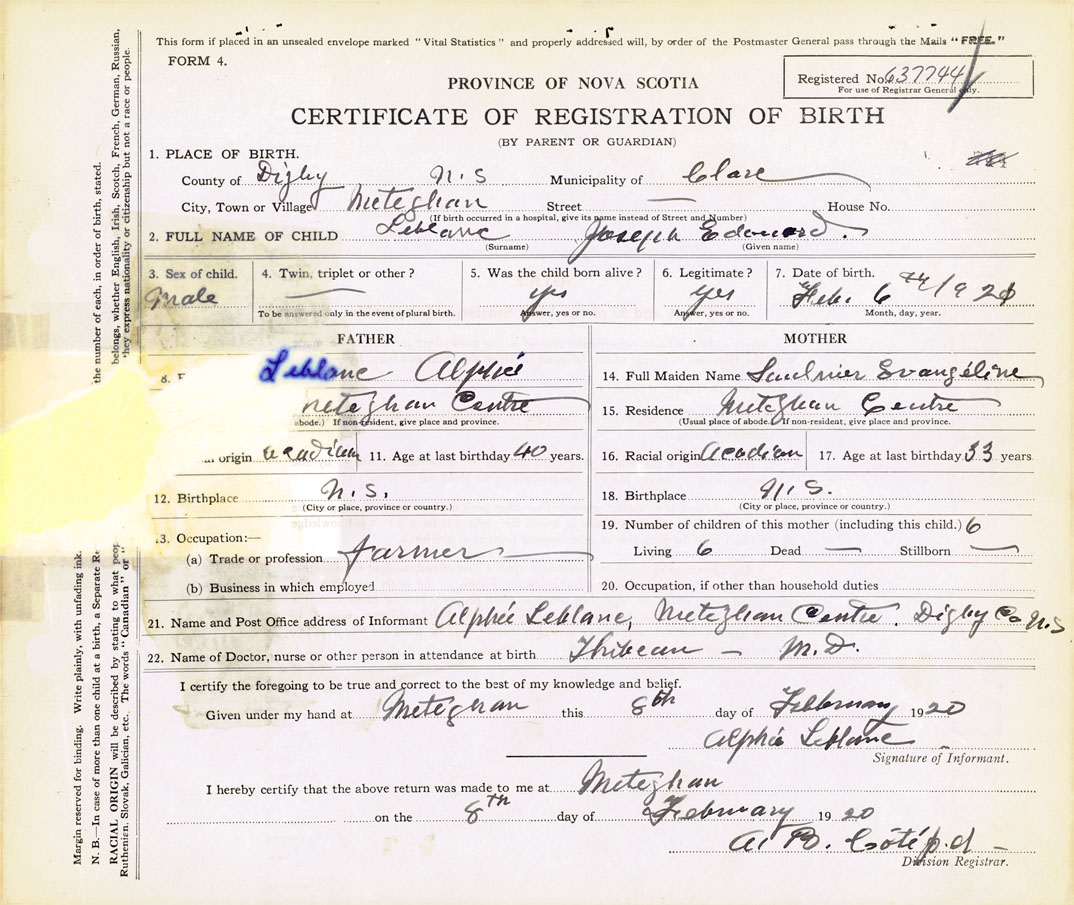 This form if placed in an unsealed envelope marked "Vital Statistics" and properly addressed will, by order of the Postmaster General pass through the Mails "FREE."
FORM 4.
Registered No. 637744
For use of Registrar General only.
PROVINCE OF NOVA SCOTIA
CERTIFICATE OF REGISTRATION OF BIRTH
(BY PARENT OR GUARDIAN)
1. PLACE OF BIRTH.
County of Digby N.S Municipality of Clare
City, Town or Village Meteghan Street — House No.
(If birth occurred in a hospital, give its name instead of Street and Number)
2. FULL NAME OF CHILD Leblanc Joseph Edouard.
(Surname) (Given name)
3. Sex of child. 4. Twin, triplet or other? 5. Was the child born alive? 6. Legitimate? 7. Date of birth.
Male — yes yes Feb. 6th 1920
To be answered only in the event of plural birth. Answer, yes or no. Answer, yes or no. Month, day, year.
FATHER MOTHER
8. Leblanc Alphée 14. Full Maiden Name Saulnier Evangéline
Meteghan Centre 15. Residence Meteghan Centre
abode.) If non-resident, give place and province. (Usual place of abode. If non-resident, give place and province.
origin Acadian 11. Age at last birthday 40 years. 16. Racial origin Acadian 17. Age at last birthday 33 years
12. Birthplace N.S. 18. Birthplace N.S.
(City or place, province or country.) (City or place, province or country.)
13. Occupation:— 19. Number of children of this mother (including this child.) 6
(a) Trade or profession farmer Living 6 Dead — Stillborn —
(b) Business in which employed 20. Occupation, if other than household duties
21. Name and Post Office address of Informant Alphée Leblanc, Meteghan Centre. Digby Co N.S
22. Name of Doctor, nurse or other person in attendance at birth Thibeau — M.D.
I certify the foregoing to be true and correct to the best of my knowledge and belief.
Given under my hand at Meteghan this 8th day of Febbruary 1920
Alphée Leblanc
Signature of Informant.
I hereby certify that the above return was made to me at Meteghan
on the 8th day of February 1920
A. B. Côté p.d —
Division Registrar.
Margin reserved for binding. Write plainly, with unfading ink.
N. B.—In case of more than one child at a birth, a Separate Re the number of each, in order of birth, stated.
RACIAL ORIGIN will be described by stating to what peop belongs, whether English, Irish, Scotch, French, German, Russian,
Ruthenien, Slovak, Galician, etc. The words "Canadian" or " they express nationality or citizenship but not a race or people.